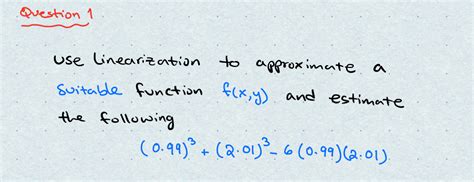 Question 1
use linearization to approximate a
suitable function f(x,y) and estimate
the following
(0.99)³ + (2.01)³ - 6(0.99)(2.01)